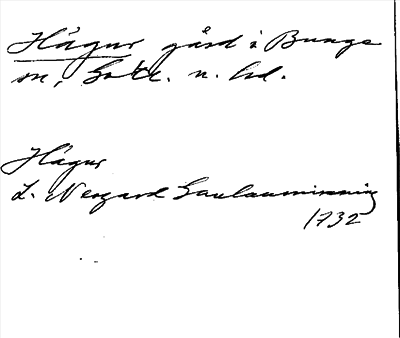 Hägur gård i Bunge
sn, Gotl. n. hd.
Hägur
L. Neogard Gaulauminning
1732